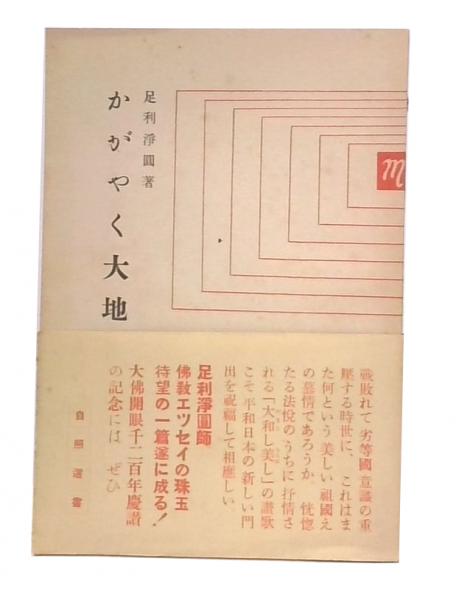 足利淨圓著
かがやく大地
m
戰敗れて劣等國意識の重
壓する時世に、これはま
た何という美しい祖國え
の慕情であろうか。恍惚
たる法悅のうちに抒情さ
れる「大和し美し」の讃歌
こそ平和日本の新しい門
出を祝福して相應しい
足利淨圓師
佛教エツセイの珠玉
待望の一篇遂に成る！
大佛開眼千二百年慶讃
の記念には　ぜひ
自照選書